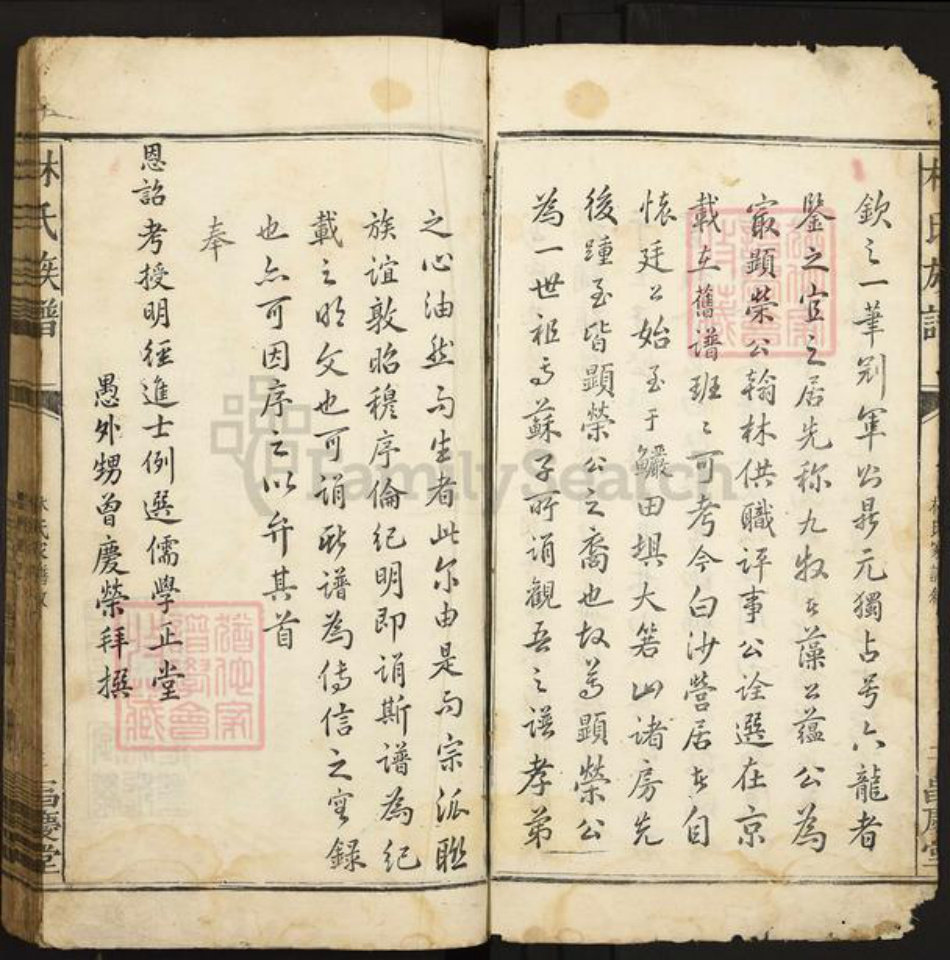 欽之一華別軍公昇元獨占号六龍者
鑒之宦之居先称九牧去藻公蘊公為
最顕榮公翰林供職評事公詮選在京
載在舊譜班〻可考今白沙營居去自
懐廷公始至于鱺田埧大箬山诸房先
後踵至皆顕榮公之裔也故為顕榮公
為一世祖而蘇子所謂觀吾之譜孝弟
之心油然而生者此尔由是而宗派聯
族谊敦昭穆序倫紀明即谓斯譜為紀
載之明文也可谓斯譜為傳信之实録
也亦可因序之以弁其首
奉
恩詔考授明經進士例選儒學正堂
愚外甥曾慶榮拜撰
林氏族譜
昌慶堂
FamilySearch